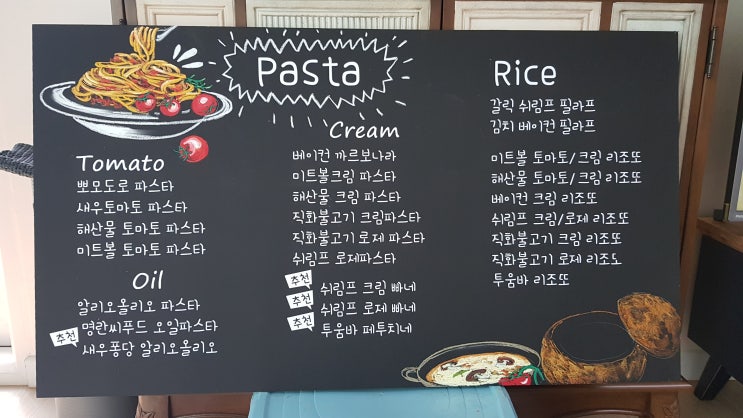 Pasta
Tomato
뽀모도로 파스타
새우토마토 파스타
해산물 토마토 파스타
미트볼 토마토 파스타
Oil
알리오올리오 파스타
추천 명란씨푸드 오일파스타
새우퐁당 알리오올리오
Cream
베이컨 까르보나라
미트볼크림 파스타
해산물 크림 파스타
직화불고기 크림파스타
직화불고기 로제 파스타
쉬림프 로제파스타
추천 쉬림프 크림 빠네
추천 쉬림프 로제 빠네
추천 투움바 페투치네
Rice
갈릭 쉬림프 필라프
김치 베이컨 필라프
미트볼 토마토/크림 리조또
해산물 토마토/크림 리조또
베이컨 크림 리조또
쉬림프 크림/로제 리조또
직화불고기 크림 리조또
직화불고기 로제 리조노
투움바 리조또